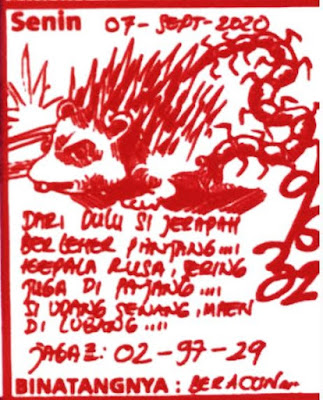 Senin 07-SEPT-2020
DARI DULU SI JERAPAH
BERLEHER PANJANG....
KEPALA RUSA, SERING
JUGA DI PAJANG....
SI UDANG SENANG, MAEN
DI LUBANG....
JAGA: 02-97-29
BINATANGNYA : BERACUN